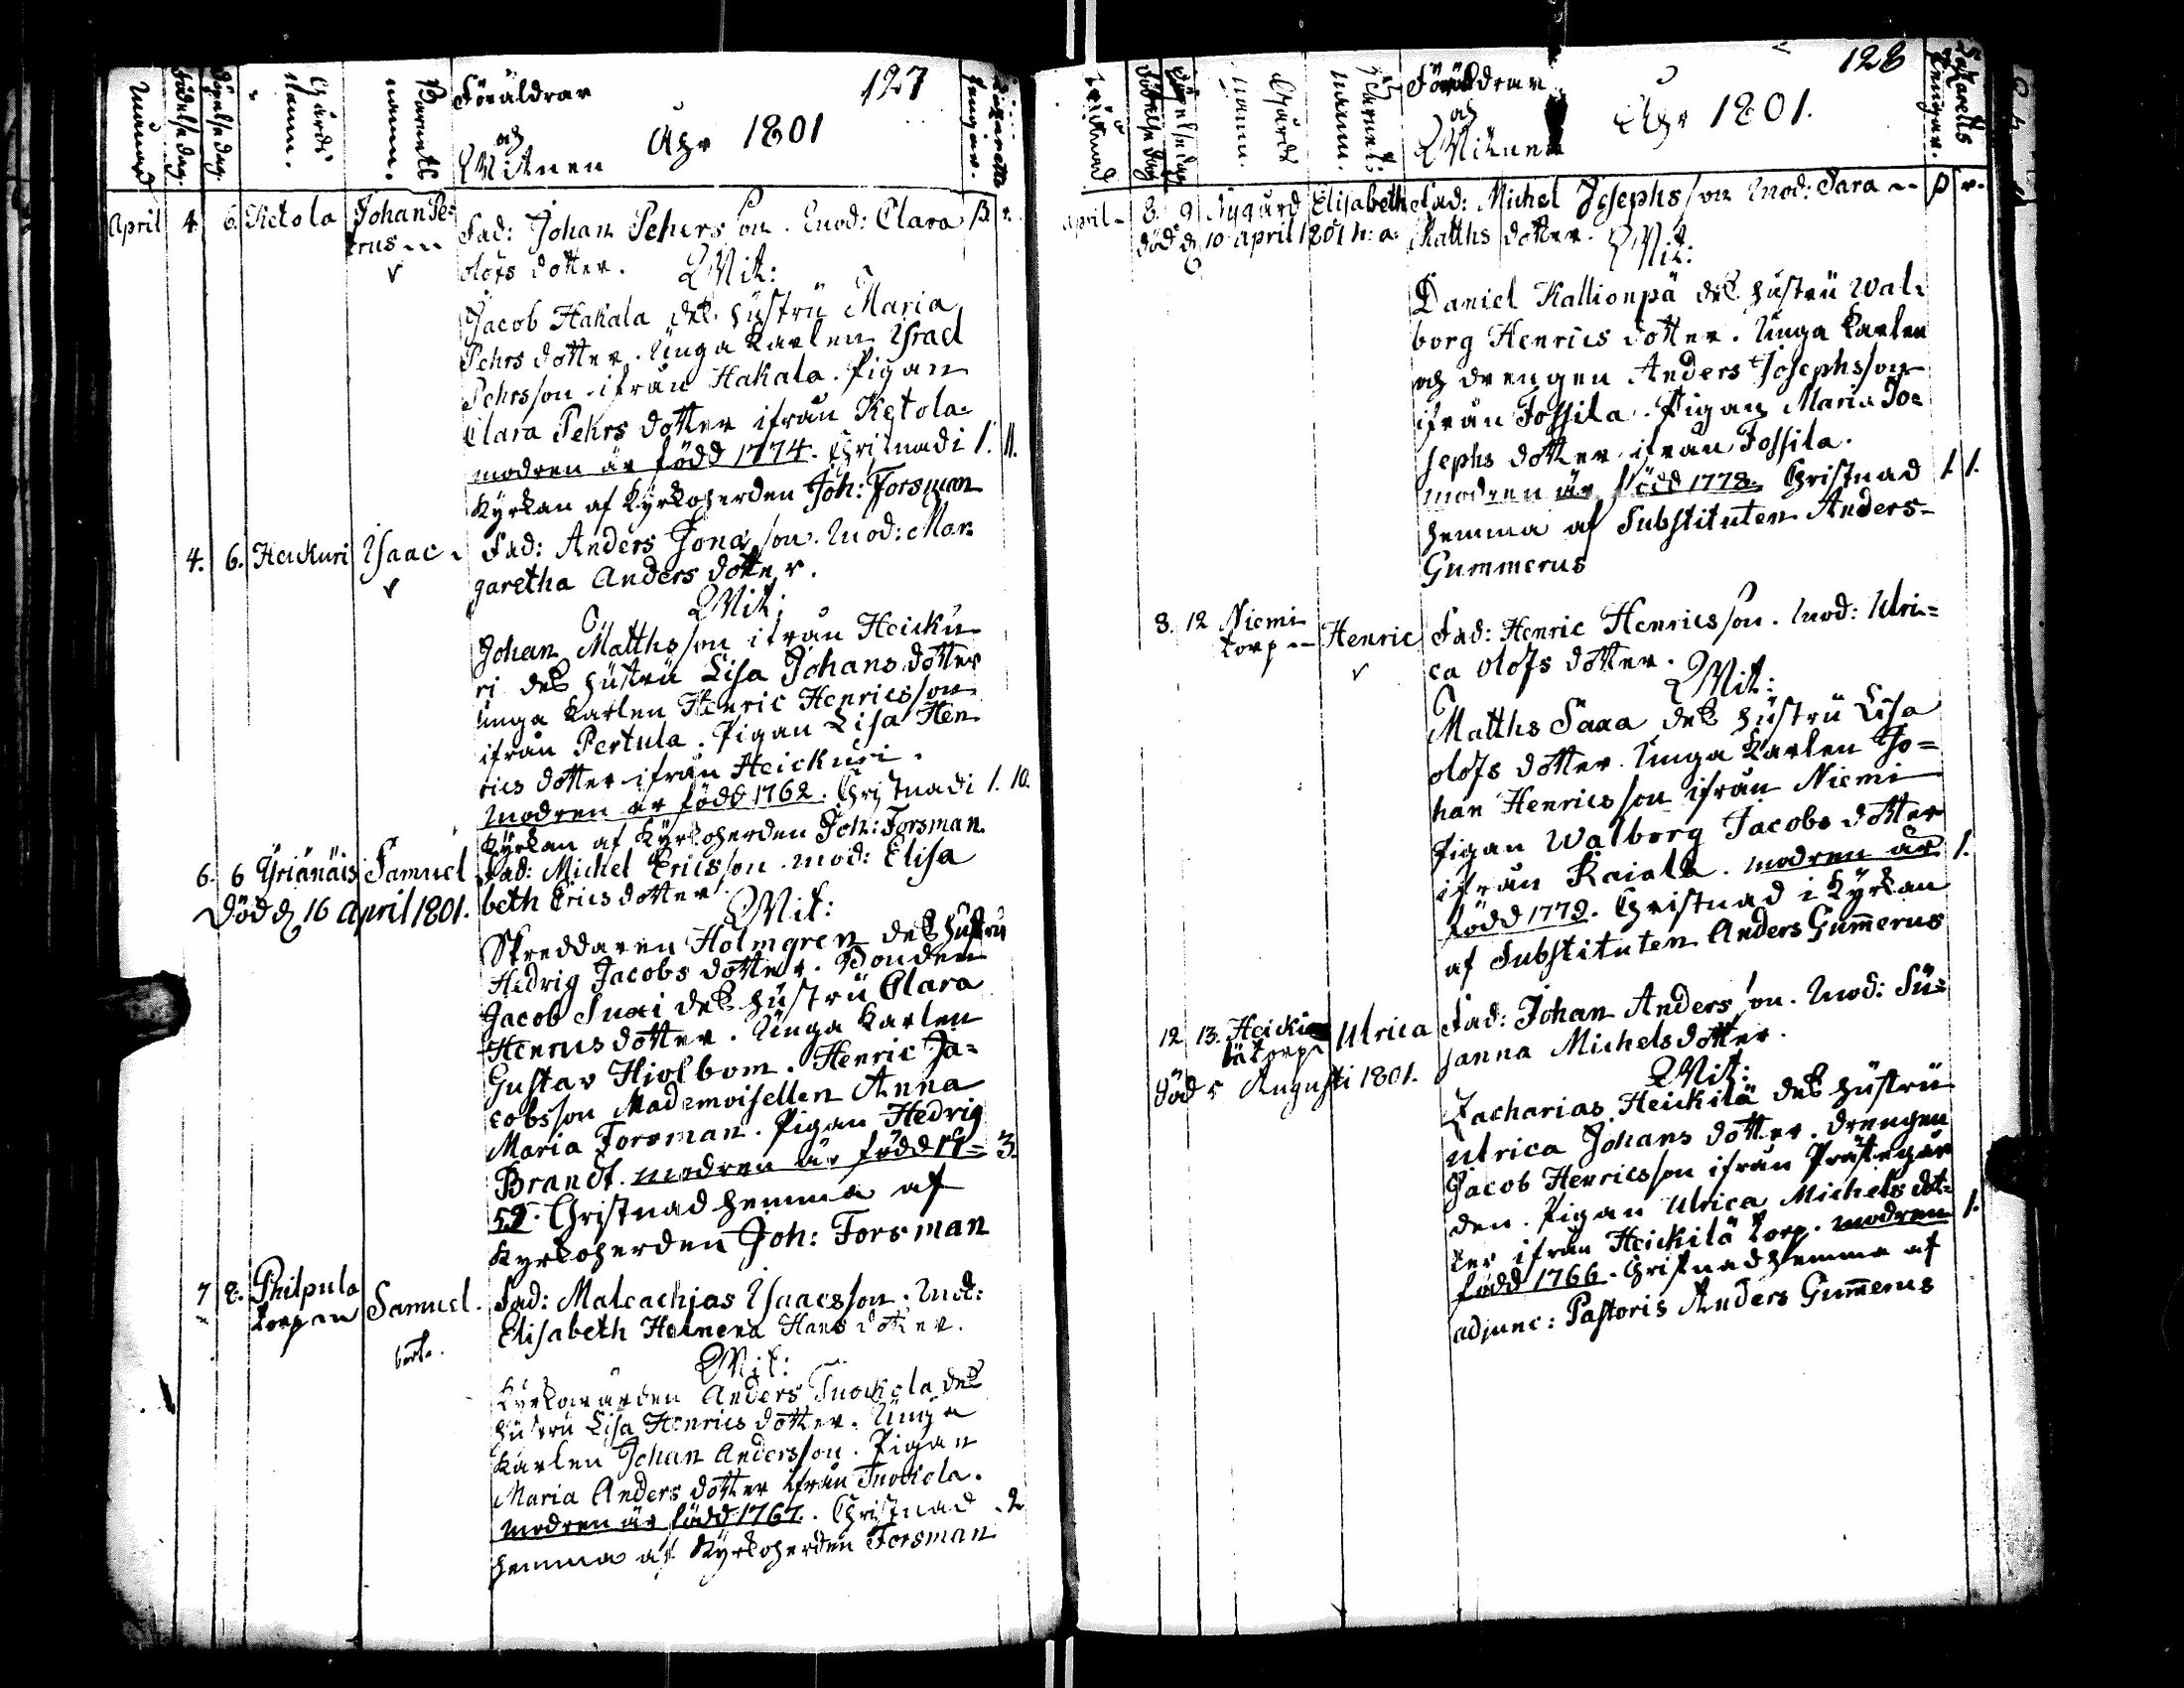 127
Månad
Födelse dag.
Döpelse dag.
Gårds namn.
Barnets namn.
Föräldrar
och
Witnen
Åhr 1801
April 4. 6. Ketola Johan Pe=
trus
Fad: Johan Pehrsson. Mod: Clara ß r.
olofs dotter. Wit:
Jacob Hakala des hustru Maria
Pehrs dotter. Unga Karlen Israel
Pehrsson ifrån Hakala. Pigan
Clara Pehrs dotter ifrån Ketola.
modren är född 1774. Christnad i 1. 11.
Kyrkan af Kyrkoherden Joh: Forsman
4. 6. Heickuri Isaac
Fad: Anders Jonasson. Mod: Mar=
garetha Anders dotter.
Wit:
Johan Matthsson ifrån Heicku
ri des hustru Lisa Johans dotter
unga Karlen Henric Henricsson
ifrån Pertula. Pigan Lisa Hen
rics dotter ifrån Heickuri.
Modren är född 1762. Christnad i 1. 10.
Kyrkan af Kyrkoherden Joh: Forsman.
6. 6 Yrjänäis Samuel
Död d. 16 april 1801.
Fad: Michel Ericsson. mod: Elisa
beth Erics dotter.
Wit:
Skreddaren Holmgren des hustru
Hedvig Jacobs dotter. Bonden
Jacob Suxi des hustru Clara
Henrics dotter. Unga Karlen
Gustav Hiolbom. Henric Ja=
cobsson Mademoisellen Anna
Maria Forsman. Pigan Hedvig
Brandt. modren är född 17= 3.
52. Christnad hemma af
Kyrkoherden Joh: Forsman
7 8. Philpula
torp Samuel.
bort.
Fad: Malcachias Isaacsson. Mod:
Elisabeth Hans dotter.
Wit:
Kyrkowärden Anders Tuockola des
hustru Lisa Henrics dotter. Unga
Karlen Johan Andersson. Pigan
Maria Anders dotter ifrån
modren är född 1767. Christnad 2
hemma af Kyrkoherden Forsman
128
Månad
Födelse dag
Döpelse dag
Gårds namn.
Barnets namn.
Föräldrar
och
Witnen
Åhr 1801.
Lazaretts Penigar.
april 8. 9 Nygård Elisabeth Fad: Michel Josephsson Mod: Sara ß r.
död d. 10 april 1801 Matths dotter. Wit:
Daniel Kallionpä des hustru Wal=
borg Henrics dotter. Unga Karlen
och drengen Anders Josephsson
ifrån Jossila. Pigan Maria Jo=
sephs dotter ifrån Jossila.
modren är född 1778. Christnad 1. 1.
hemma af Substituten Anders
Gummerus
8. 12 Niemi
torp Henric
Fad: Henric Henricsson. Mod: Ulri=
ca olofs dotter.
Wit:
Matths Saxa des hustru Lisa
olofs dotter. Unga Karlen Jo=
han Henricsson ifrån Niemi
Pigan Walborg Jacobs dotter
ifrån Raiala. modren är 1.
född 1779. Christnad i Kyrkan
af Substituten Anders Gum̄erus
12 13. Heicki
lä torp Ulrica
död 5 Augusti 1801.
Fad: Johan Andersson. Mod: Su=
sanna Michels dotter.
Wit:
Zacharias Heickilä des hustru
ulrica Johans dotter. drengen
Jacob Henricsson ifrån Prästegår
den. Pigan Ulrica Michels dot=
ter ifrån Heickilä torp. modren 1.
född 1766. Christnad hemma af
adjunc: Pastoris Anders Gum̄erus